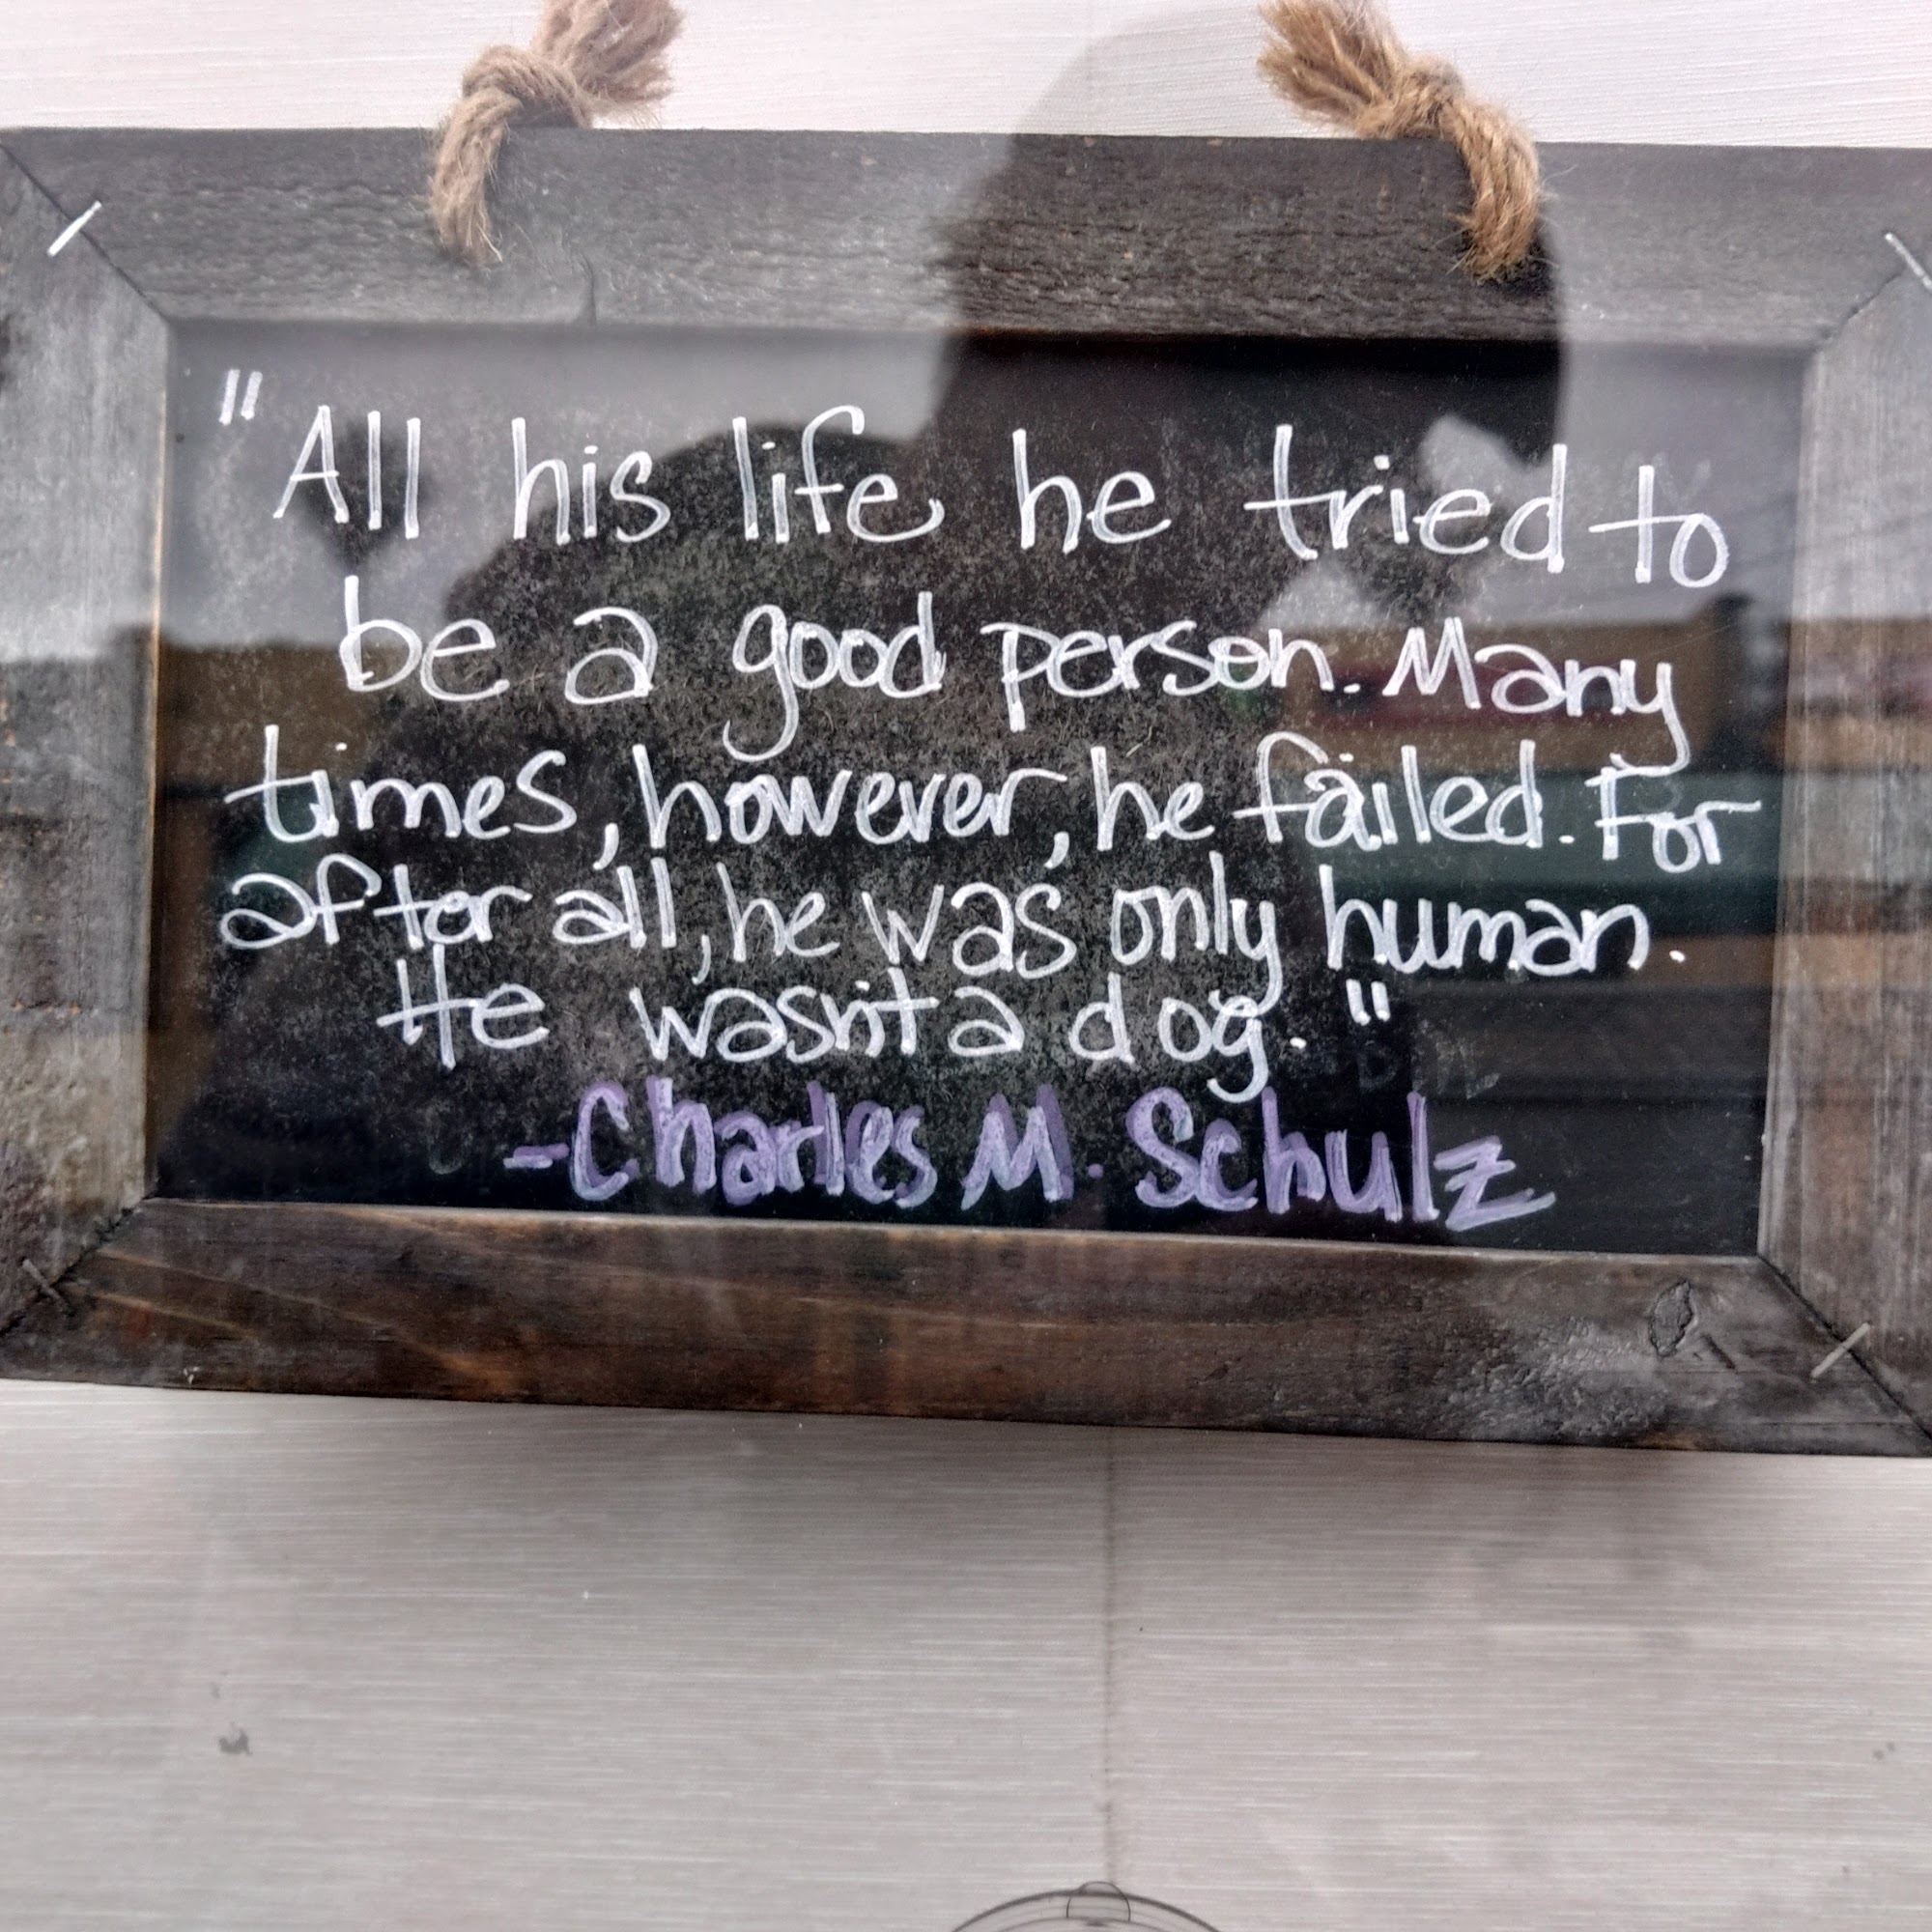 "All his life he tried to
be a good person. Many
times, however, he failed. For
after all, he was only human.
He wasn't a dog."
-Charles M. Schulz